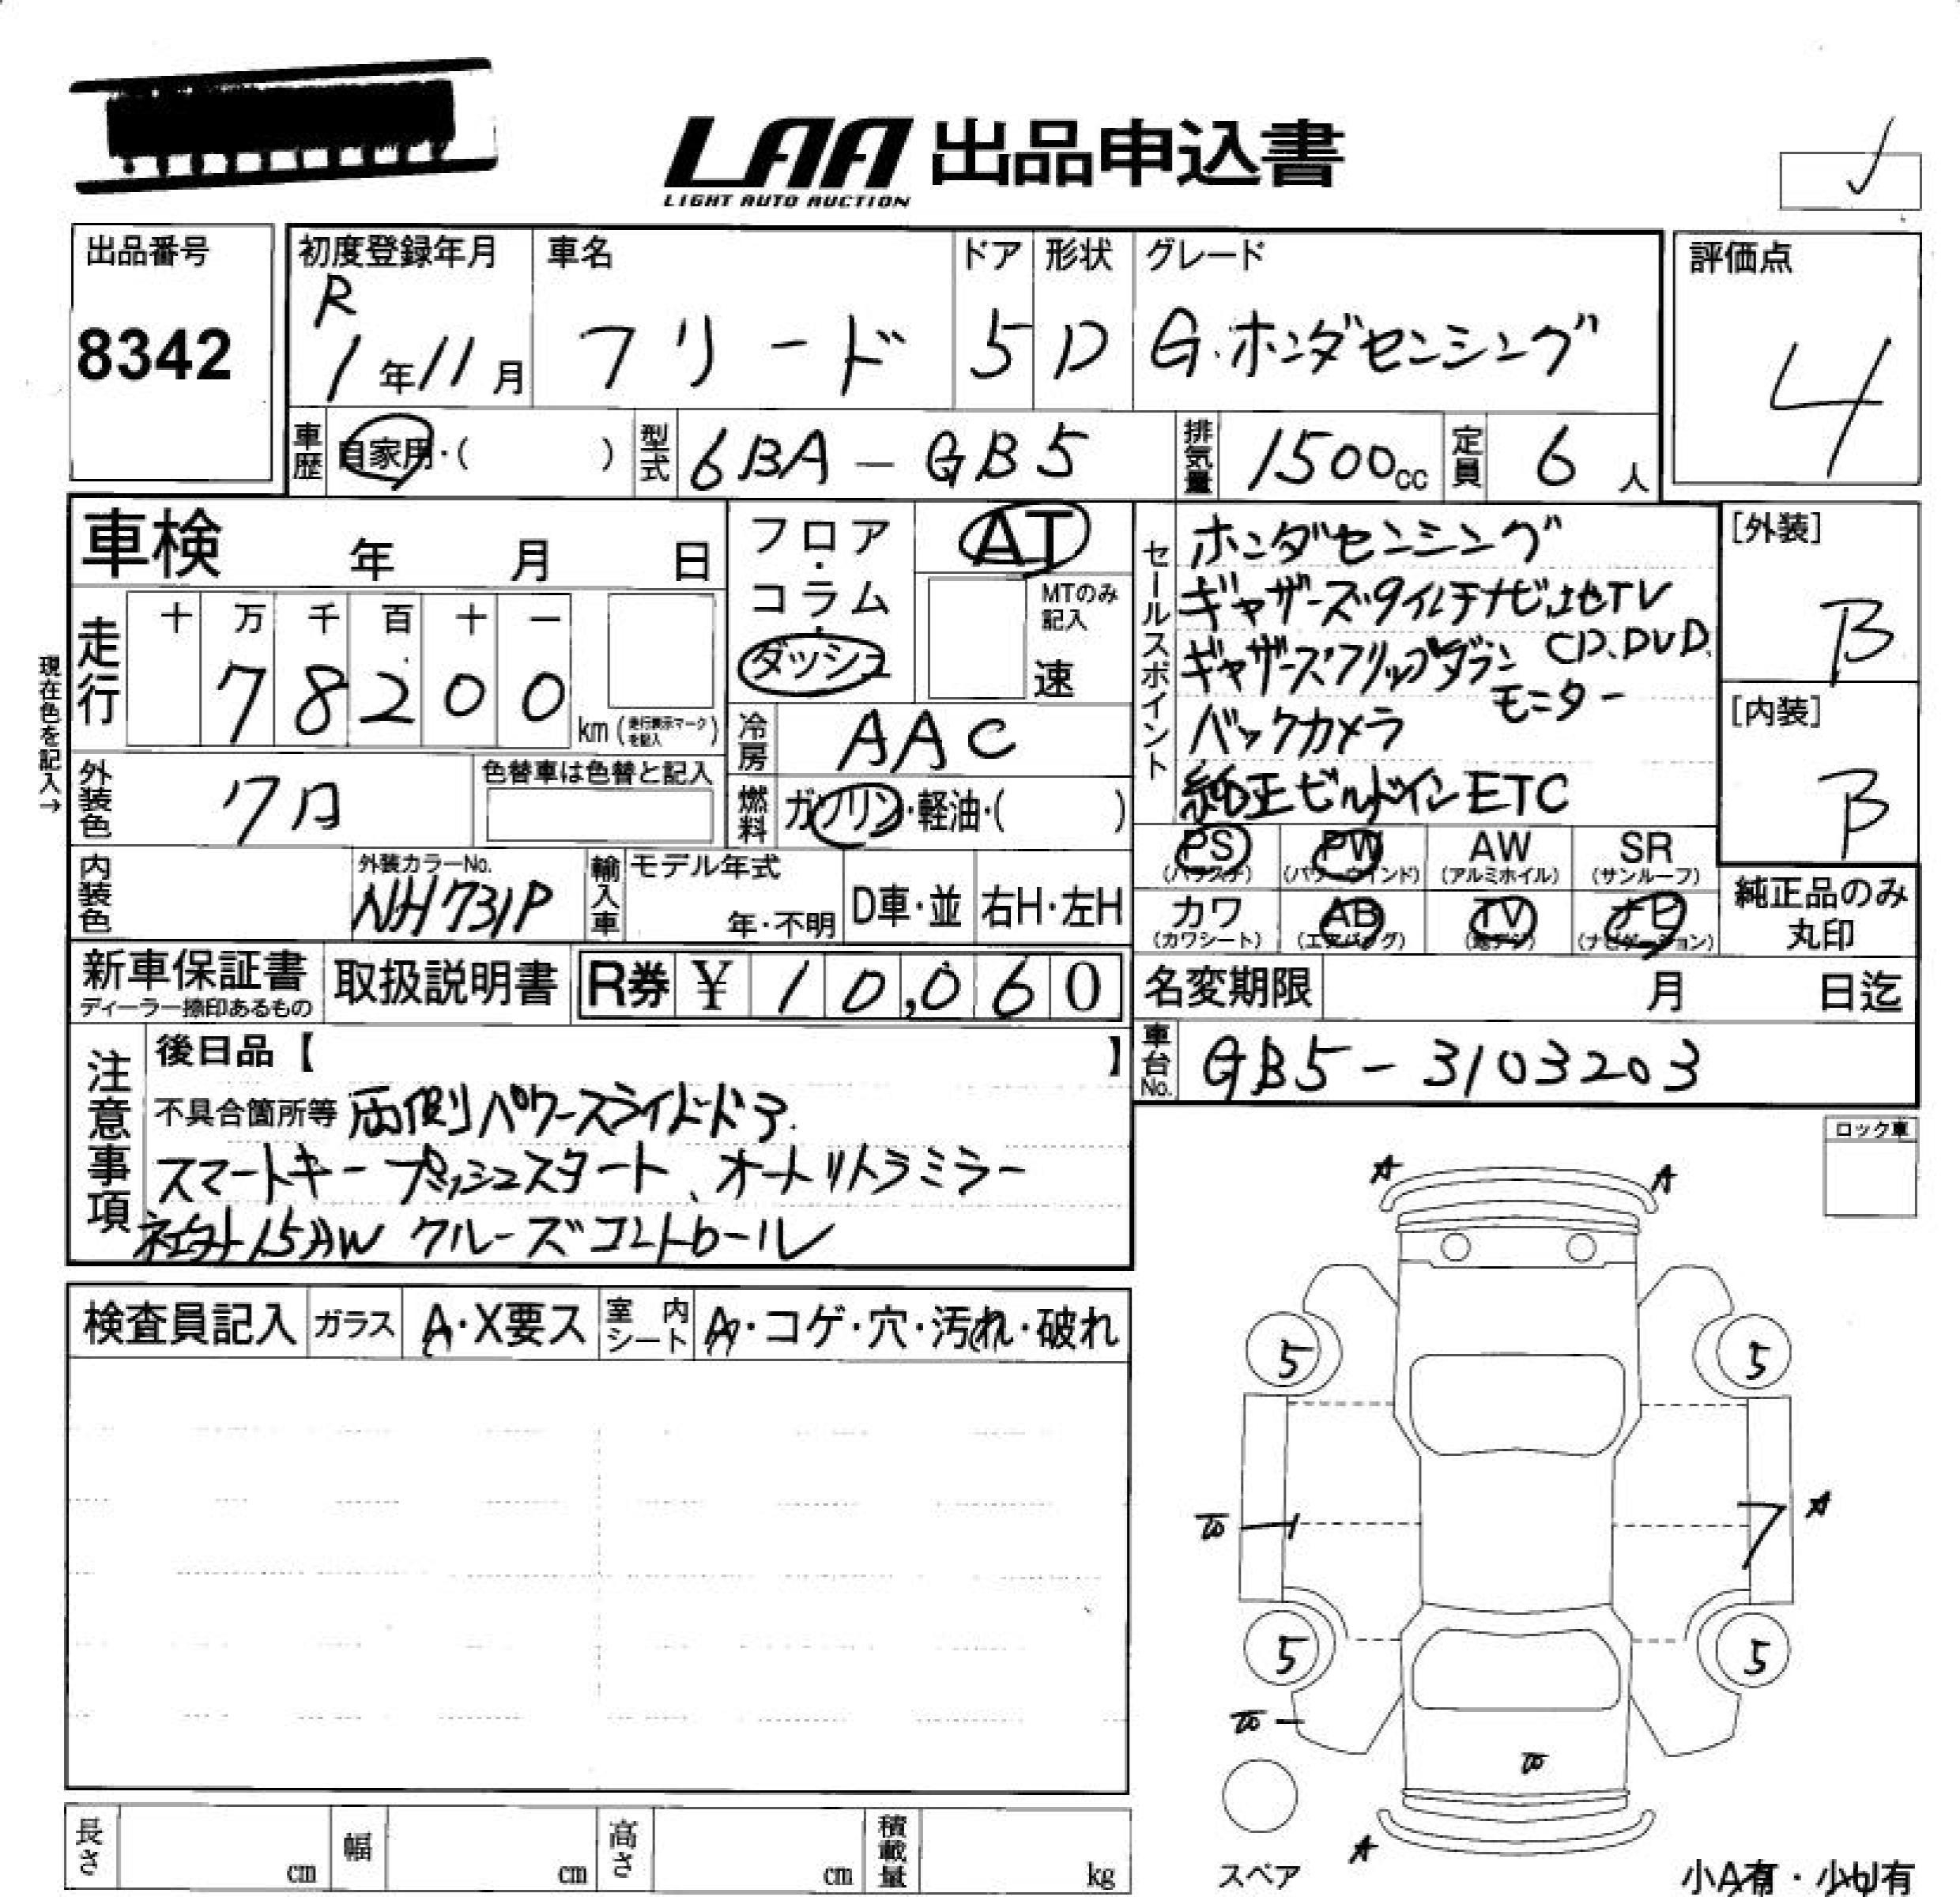 LAA 出品申込書
LIGHT AUTO AUCTION
出品番号
8342
初度登録年月
R
1年11月
車名
フリード
ドア
5
形状
D
グレード
G.ホンダセンシング
評価点
4
車歴
自家用・( )
型式
6BA-GB5
排気量
1500cc
定員
6人
車検 年 月 日
フロア・コラム・ダッシュ
AT
MTのみ記入
速
走行
十 万 千 百 十 一
7 8 2 0 0
km (走行表示マークを記入)
現在色を記入→
冷房
AAC
外装色
クロ
色替車は色替と記入
燃料
ガソリン・軽油・( )
セールスポイント
ホンダセンシング
ギャザーズ・9インチナビ地TV
CD.DVD
ギャザーズフリップダウン
モニター
バックカメラ
純正ビルドインETC
[外装]
B
[内装]
B
PS
(パワステ)
PW
(パワーウインド)
AW
(アルミホイル)
SR
(サンルーフ)
カワ
(カワシート)
AB
(エアバッグ)
TV
(地デジ)
ナビ
(ナビゲーション)
純正品のみ
丸印
内装色
外装カラーNo.
NH731P
輸入車
モデル年式
年・不明
D車・並
右H・左H
新車保証書
ディーラー捺印あるもの
取扱説明書
R券 ¥ 10,060
名変期限 月 日迄
車台No.
GB5-3103203
注意事項
後日品【 】
不具合箇所等 両側パワースライドドア.
スマートキープッシュスタート、オートリトラミラー
社外15AW クルーズコントロール
ロック車
検査員記入
ガラス
A・X要ス
室内シート
A・コゲ・穴・汚れ・破れ
A
A
5
5
A
5
5
A
スペア
小A有・小U有
長さ cm
幅 cm
高さ cm
積載量 kg